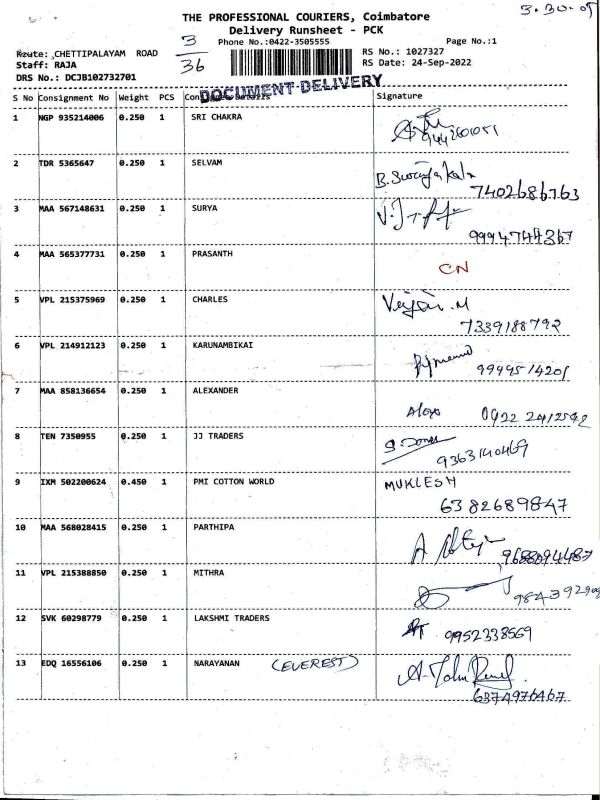 3.30.
THE PROFESSIONAL COURIERS, Coimbatore
Delivery Runsheet - PCK
3
36
Phone No.:0422-3505555
Page No.:1
Route: CHETTIPALAYAM ROAD
RS No.: 1027327
Staff: RAJA
RS Date: 24-Sep-2022
DRS No.: DCJB102732701
DOCUMENT DELIVERY
S No Consignment No Weight PCS Consignee Details Signature
1 NGP 935214006 0.250 1 SRI CHAKRA
2 TDR 5365647 0.250 1 SELVAM
7402686763
3 MAA 567148631 0.250 1 SURYA
9994744367
4 MAA 565377731 0.250 1 PRASANTH CN
5 VPL 215375969 0.250 1 CHARLES
7339188792
6 VPL 214912123 0.250 1 KARUNAMBIKAI
7 MAA 858136654 0.250 1 ALEXANDER
8 TEN 7350955 0.250 1 JJ TRADERS
9363140469
9 IXM 502200624 0.450 1 PMI COTTON WORLD MUKLESH
6382689847
10 MAA 568028415 0.250 1 PARTHIPA
11 VPL 215388850 0.250 1 MITHRA
12 SVK 60298779 0.250 1 LAKSHMI TRADERS 9952338569
13 EDQ 16556106 0.250 1 NARAYANAN (EVEREST)
6374976467